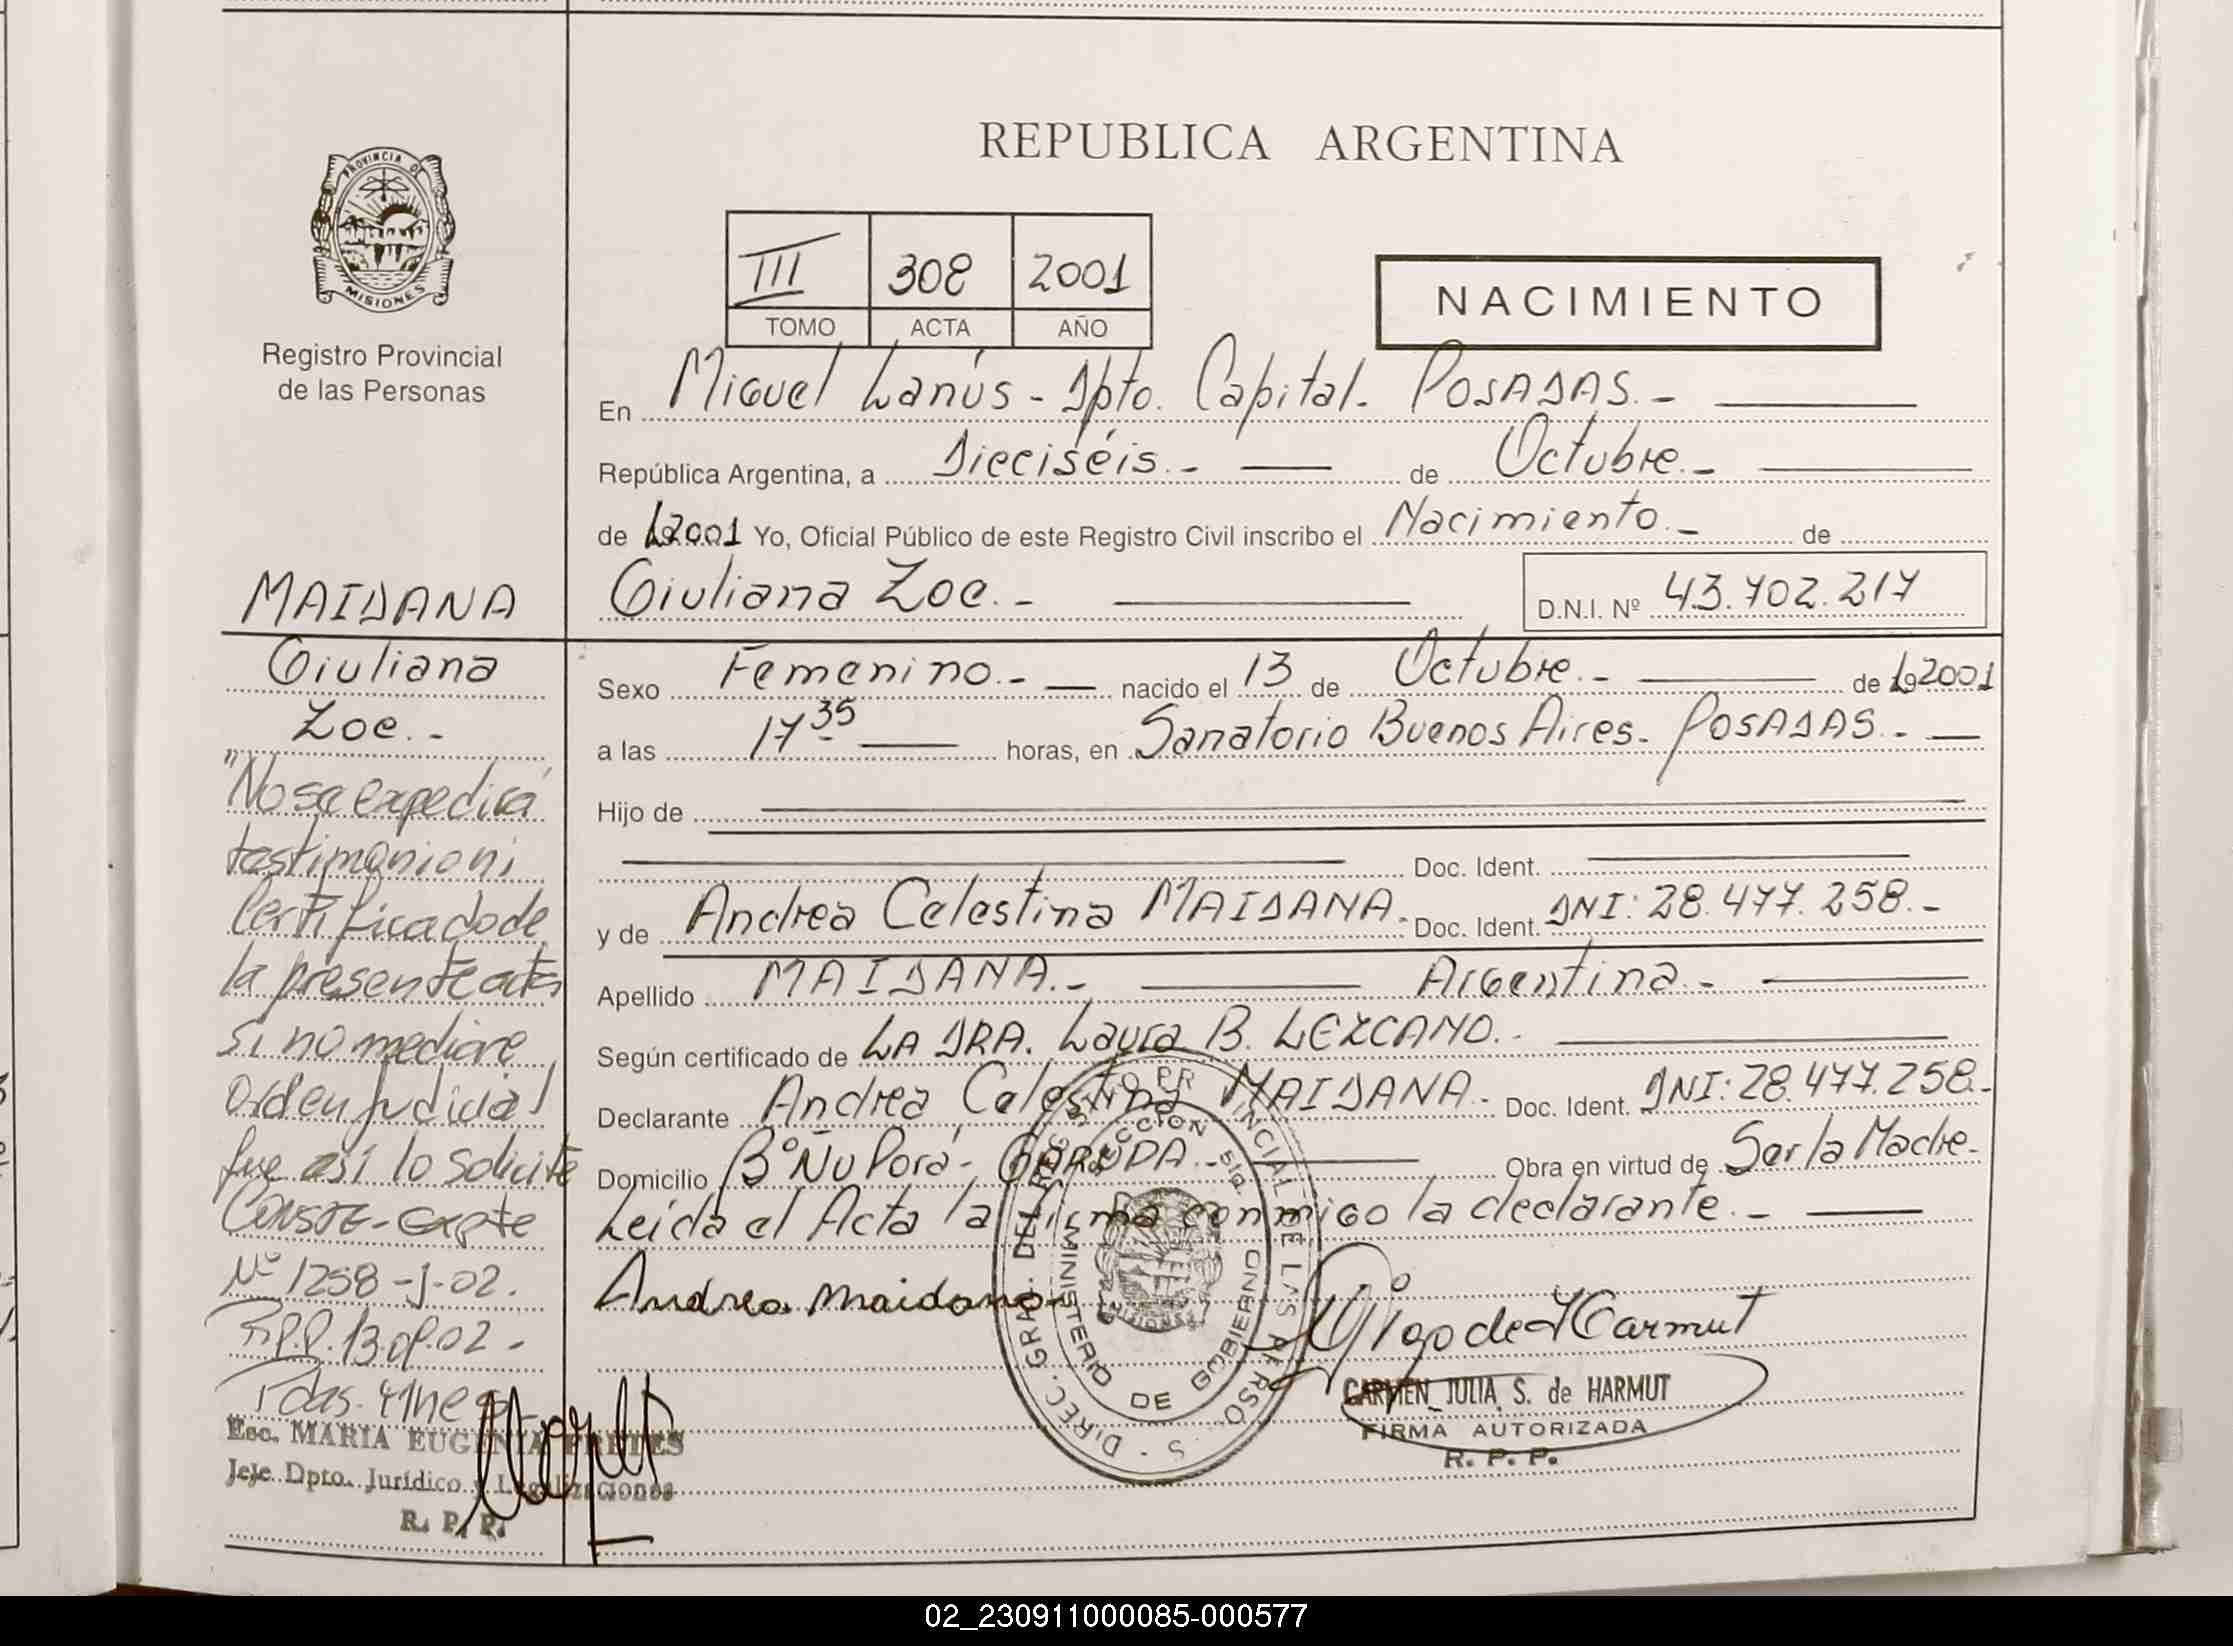 REPUBLICA ARGENTINA
PROVINCIA DE
MISIONES
Registro Provincial
de las Personas
III 308 2001
TOMO ACTA AÑO
NACIMIENTO
En Miguel Lanús - Dpto. Capital. POSADAS. -
República Argentina, a Dieciséis. - de Octubre. -
de 2001 Yo, Oficial Público de este Registro Civil inscribo el Nacimiento. - de
Giuliana Zoe. - D.N.I. Nº 43.702.217
Sexo Femenino. - nacido el 13 de Octubre. - de 2001
a las 17 35 horas, en Sanatorio Buenos Aires. POSADAS. -
Hijo de
Doc. Ident.
y de Andrea Celestina MAIDANA. Doc. Ident. DNI: 28.477.258. -
Apellido MAIDANA. - Argentina. -
Según certificado de LA DRA. Laura B. LEZCANO. -
Declarante Andrea Celestina MAIDANA. - Doc. Ident. DNI: 28.477.258. -
Domicilio Bº Ñu Porá - GARUPA. - Obra en virtud de Ser la Madre. -
Leída el Acta la firma conmigo la declarante. -
Andrea Maidana
CARMEN JULIA S. de HARMUT
FIRMA AUTORIZADA
R. P. P.
MINISTERIO DE GOBIERNO
MAIDANA
Giuliana
Zoe. -
"No se expedirá
testimonio ni
Certificado de
la presente acta
si no mediare
orden judicial
que así lo solicite
CONSTE - Expte
Nº 1258 - J - 02.
R.P.P. 13.09.02 -
Esc. MARIA EUGENIA PRETES
Jeje Dpto. Jurídico y Legalizaciones
R. P. P.
02_230911000085-000577